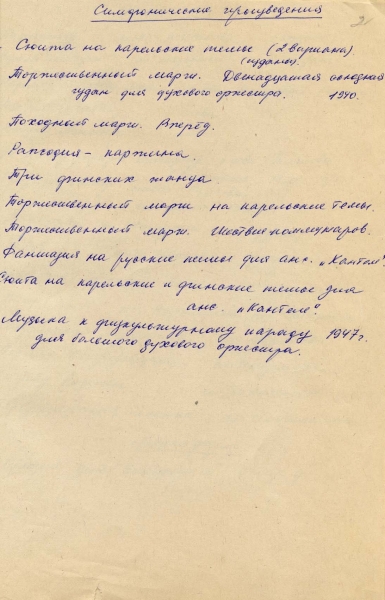 Симфонические произведения
2
Сюита на карельские темы (2 варианта)
(изданы).
Торжественный марш. Двенадцатая
издан для духового оркестра. 1940.
Походный марш. Вперёд.
Рапсодия – картина.
Три финских танца.
Торжественный марш на карельские темы.
Торжественный марш. Шествие коммунаров.
Фантазия на русские темы для анс. „Кантеле"
Сюита на карельские и финские темы для
анс. „Кантеле".
Музыка к физкультурному параду 1947 г.
для большого духового оркестра.